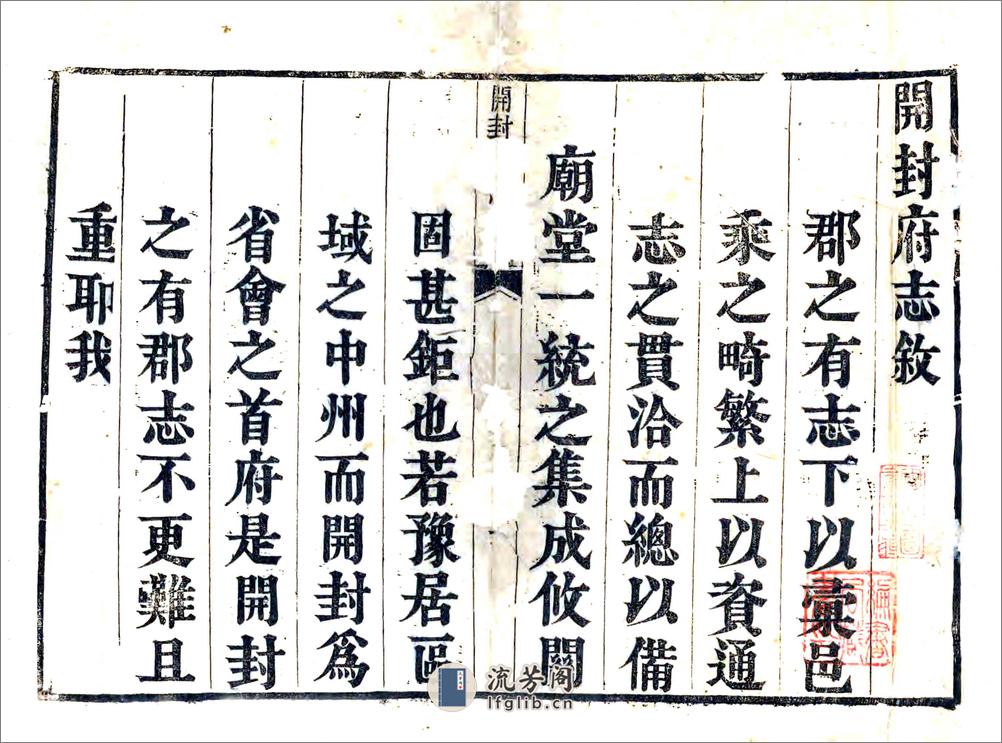 開封府志敘
郡之有志下以彙邑
乘之畸繁上以資通
志之貫洽而總以備
廟堂一統之集成攸關
開封
固甚鉅也若豫居區
域之中州而開封爲
省會之首府是開封
之有郡志不更難且
重耶我
流芳阁
lfglib.cn